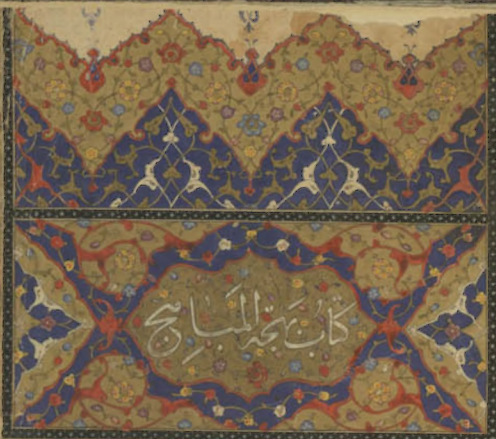 کتاب بهجة المباهج